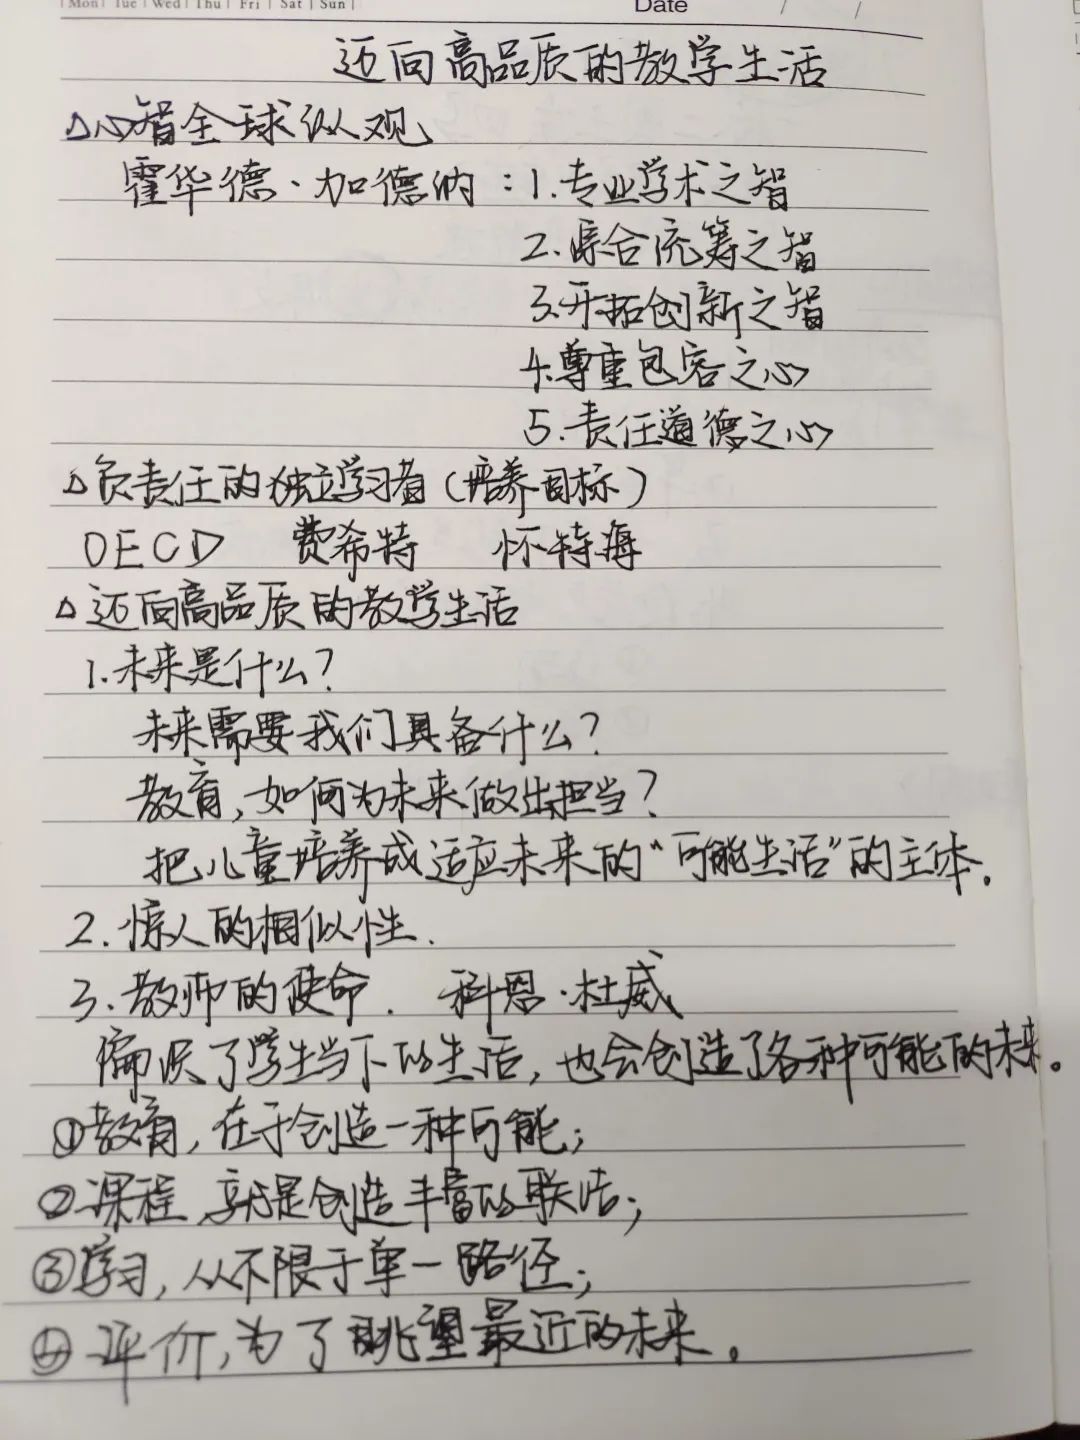 Mon Tue Wed Thu Fri Sat Sun
Date / /
迈向高品质的教学生活
△心智全球纵观
霍华德·加德纳：1.专业学术之智
2.综合统筹之智
3.开拓创新之智
4.尊重包容之心
5.责任道德之心
△负责任的独立学习者（培养目标）
OECD 费希特 怀特海
△迈向高品质的教学生活
1.未来是什么？
未来需要我们具备什么？
教育，如何为未来做出担当？
把儿童培养成适应未来的“可能生活”的主体。
2.惊人的相似性.
3.教师的使命. 科恩·杜威
了学生当下的生活，也会创造了各种可能的未来。
①教育，在于创造一种可能；
②课程，就是创造丰富的联结；
③学习，从不限于单一路径；
④评价，为了眺望最近的未来。